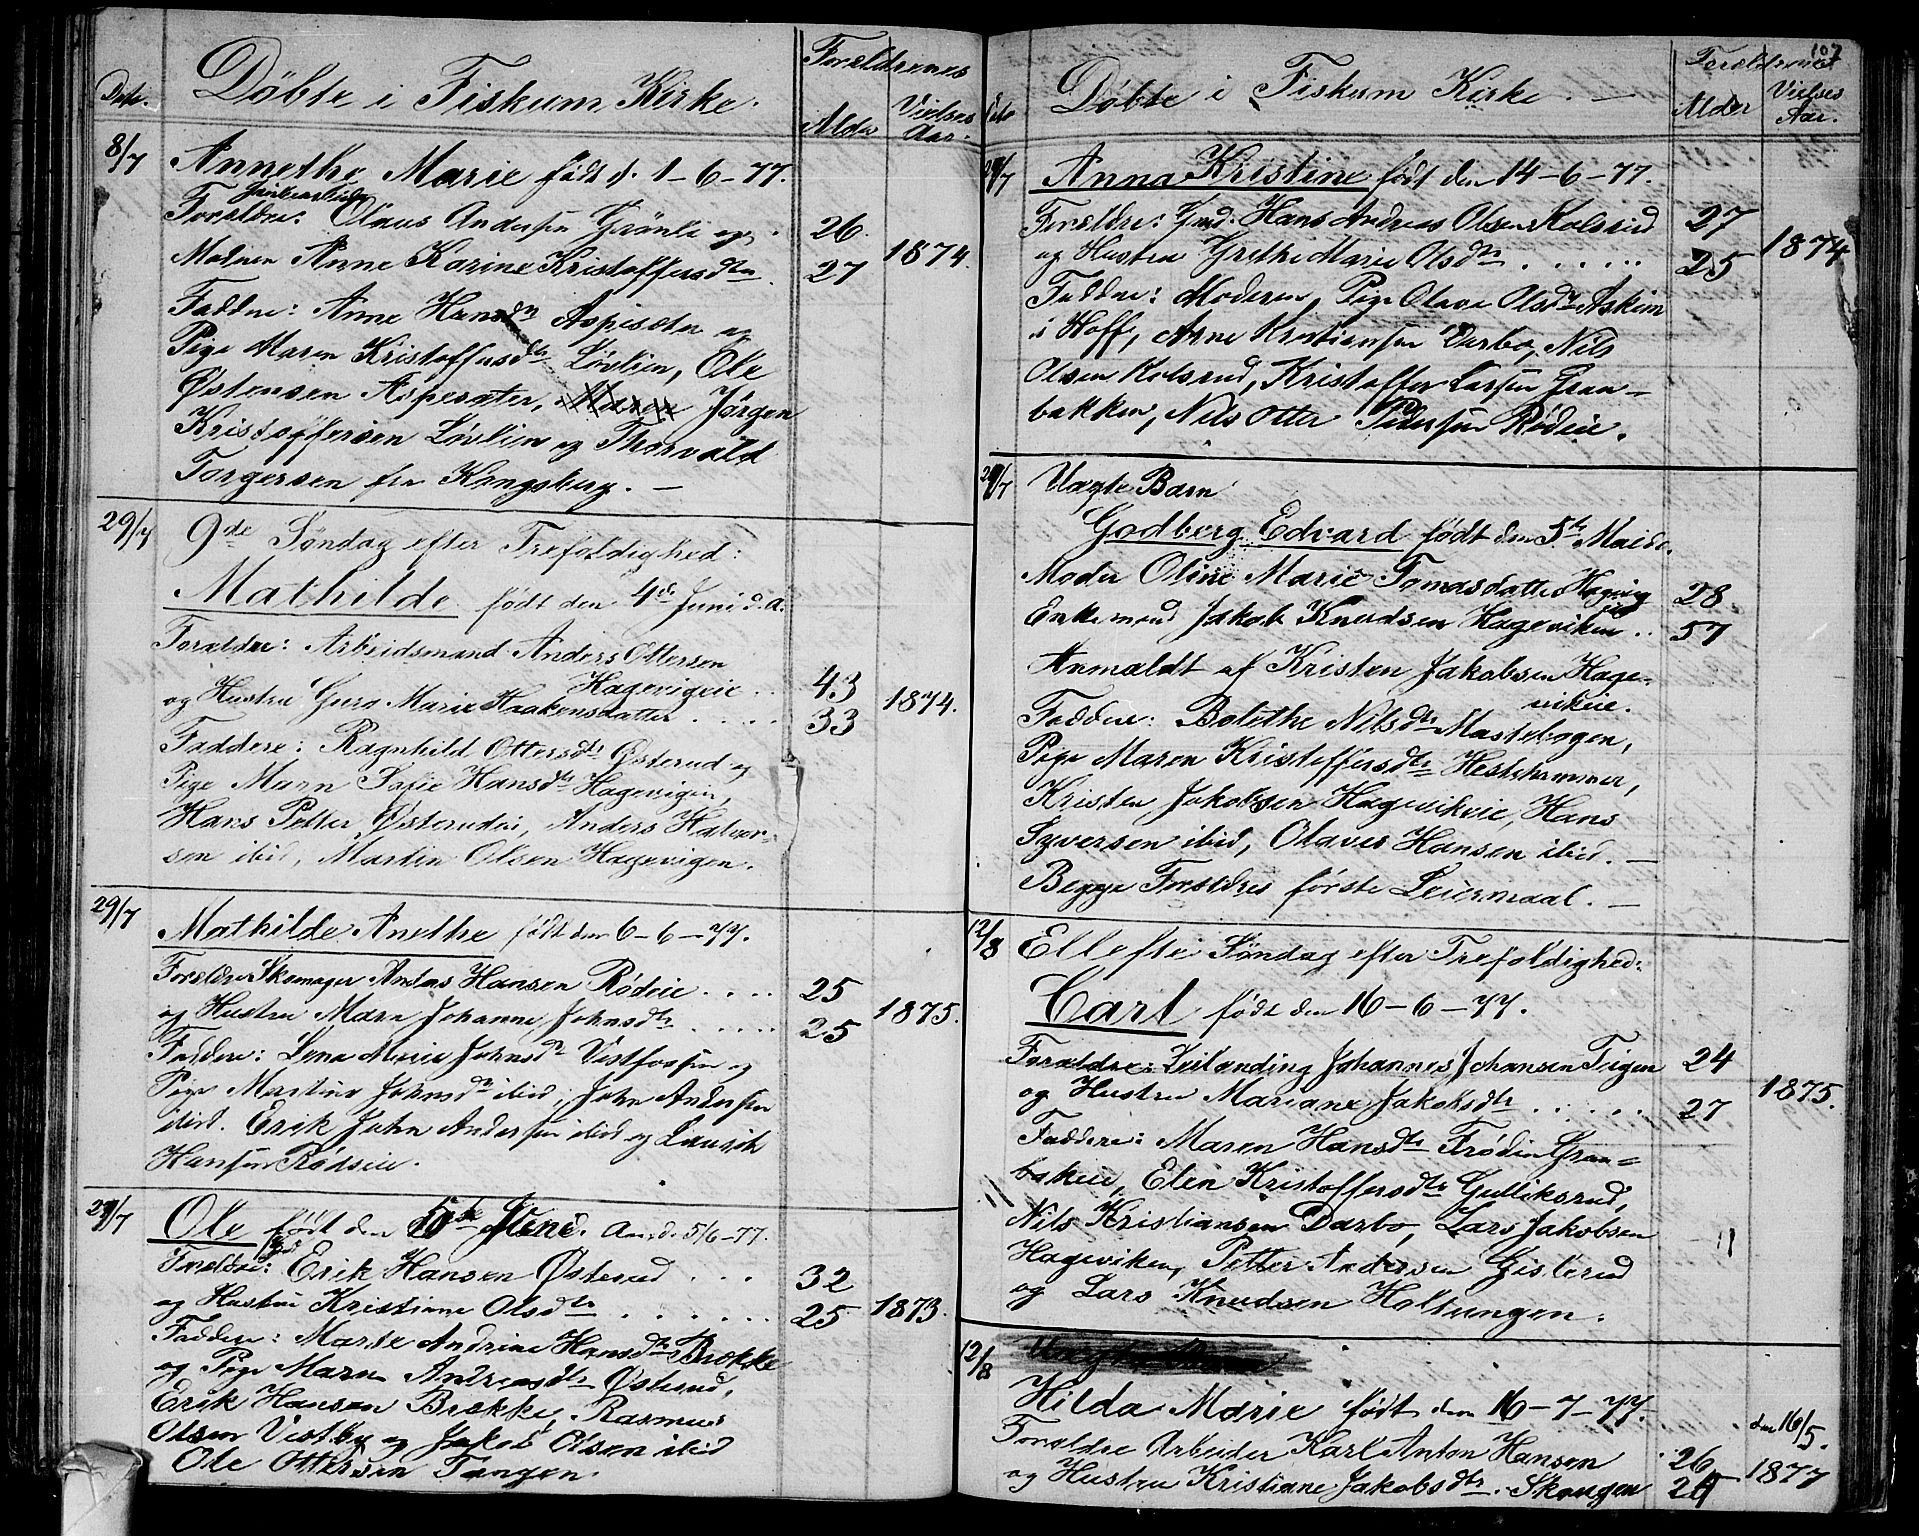 Døbte i Fiskum Kirke.
Date.
Forældrenes
Alder
Vielses
Aar.
8/7
Annethe Marie født d. 1-6-77.
Forældre: Olaus Andersen Grønli og
26
Madmen Anne Karine Kristoffersdtr
27
1874.
Faddre: Anne Hansdtr Aspesæter og
Pige Maren Kristoffersdtr Løvlien, Ole
Østensen Aspesæter, Jørgen
Kristoffersen Løvlien og Thorvald
Torgersen fra Kongsberg. —
29/7
9de Søndag efter Trefoldighed:
Mathilde født den 4de Juni d. a.
Forældre: Arbeidsmand Anders Ottersen
Hagevigeie
43
og Hustru Guro Marie Haakensdatter
33
1874.
Faddere: Ragnhild Ottersdtr Østerud og
Pige Maren Sofie Hansdtr Hagevigen,
Hans Petter Østerudeie, Anders Halvor-
sen ibid, Martin Olsen Hagevigen.
29/7
Mathilde Anethe født den 6-6-77.
Forældre Skomager Andas Hansen Rødeie
25
og Hustru Maren Johanne Johnsdtr
25
1875.
Faddere: Lena Marie Johnsdtr Vestfossen og
Pige Martine Johnsdtr ibid, John Andersen
ibid. Erik John Andersen ibid og Laurits
Hansen Rødseie.
29/7
Ole født den 5te Juni. 5/6-77.
Forældre: Erik Hansen Østerud
32
og Hustru Kristiane Olsdtr
25
1873.
Faddere: Marte Andrine Hansdtr Brække
og Pige Maren Andreasdtr Østerud,
Erik Hansen Brække, Rasmus
Olsen Vestby og Jakob Olsen ibid
Ole Ottersen Tangen.
107
Døbte i Fiskum Kirke. —
Forældrenes
Alder
Vielses
Aar.
29/7
Anna Kristine født den 14-6-77.
Forældre: Gmd. Hans Andreas Olsen Kolsrud
27
og Hustru Grethe Marie Olsdtr
25
1874
Faddre: Moderen, Pige Olava Olsdtr Askim
i Hoff, Arne Kristiansen Darbo, Nils
Olsen Kolsrud, Kristoffer Larsen Gran-
bakken, Nils Otter Pedersen Rødeie.
29/7
Uægte Barn
Godberg Edvard født den 5te Mai
Moder Oline Marie Tomasdatter
28
Enkemand Jakob Knudsen Hageviken
57
Anmeldt af Kristen Jakobsen Hage-
vikeie.
Faddere: Bolethe Nilsdtr Mastebogen,
Pige Maren Kristoffersdtr Hestehammer,
Kristen Jakobsen Hagevikeie, Hans
Syversen ibid, Olaves Hansen ibid. —
Begge Forældres første Leiermaal. —
12/8
Ellefte Søndag efter Trefoldighed:
Carl født den 16-6-77.
Forældre: Leilending Johannes Johansen Teigen
24
og Hustru Mariane Jakobsdtr
27
1875.
Faddere: Maren Hansdtr Frødin Gran-
bakeie, Elen Kristoffersdtr Gulliksrud,
Nils Kristiansen Darbo, Lars Jakobsen
Hageviken, Petter Andersen Gislerud
og Lars Knudsen Holtungen.
12/8
Hilda Marie født den 16-7-77.
den 16/5.
Forældre Arbeider Karl Anton Hansen
26
og Hustru Kristiane Jakobsdtr. Skougen
1877